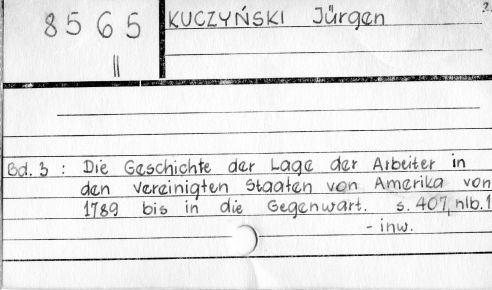 8565 KUCZYŃSKI Jürgen 2.
||
Bd. 3 : Die Geschichte der Lage der Arbeiter in
den Vereinigten Staaten von Amerika von
1789 bis in die Gegenwart. s. 407, nlb. 1
- inw.